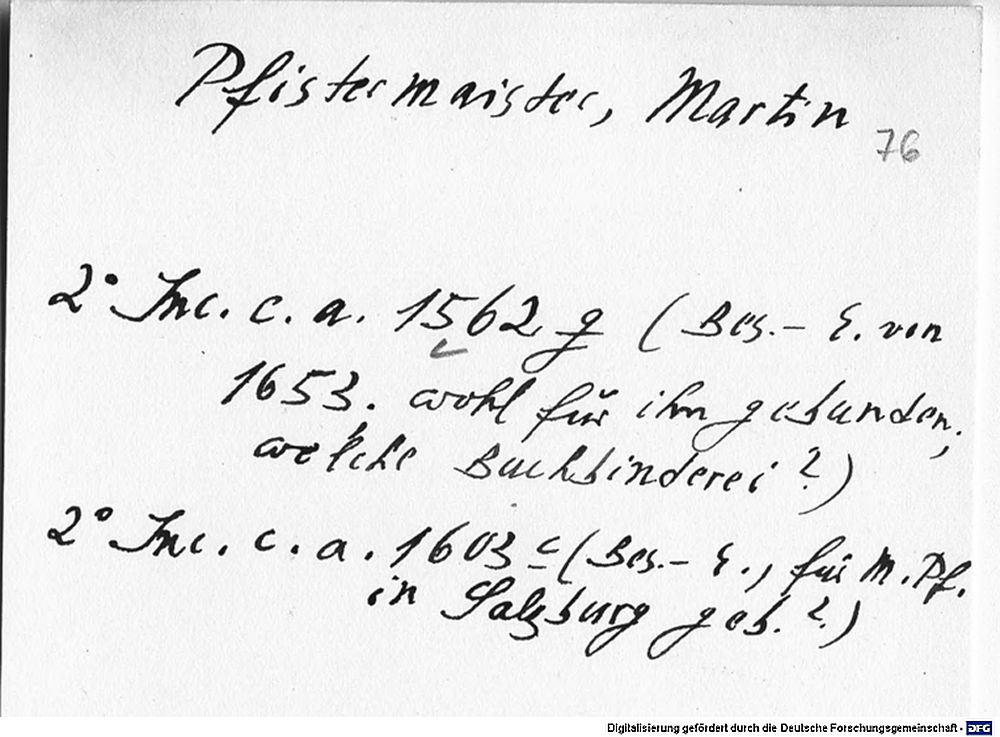 Pfistermaister, Martin
76
2° Inc. c. a. 1562 g (Bes.- E. von
1653. wohl für ihn gebunden,
welche Buchbinderei?)
2° Inc. c. a. 1603 c (Bes.- E., für M. Pf.
in Salzburg geb.?)
Digitalisierung gefördert durch die Deutsche Forschungsgemeinschaft - DFG